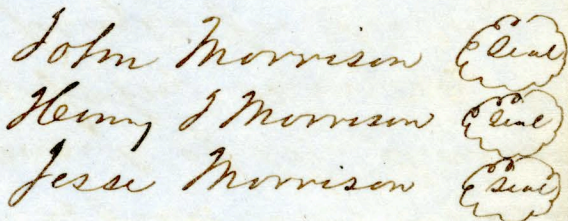 John Morrison Seal
Henry J Morrison Seal
Jesse Morrison Seal